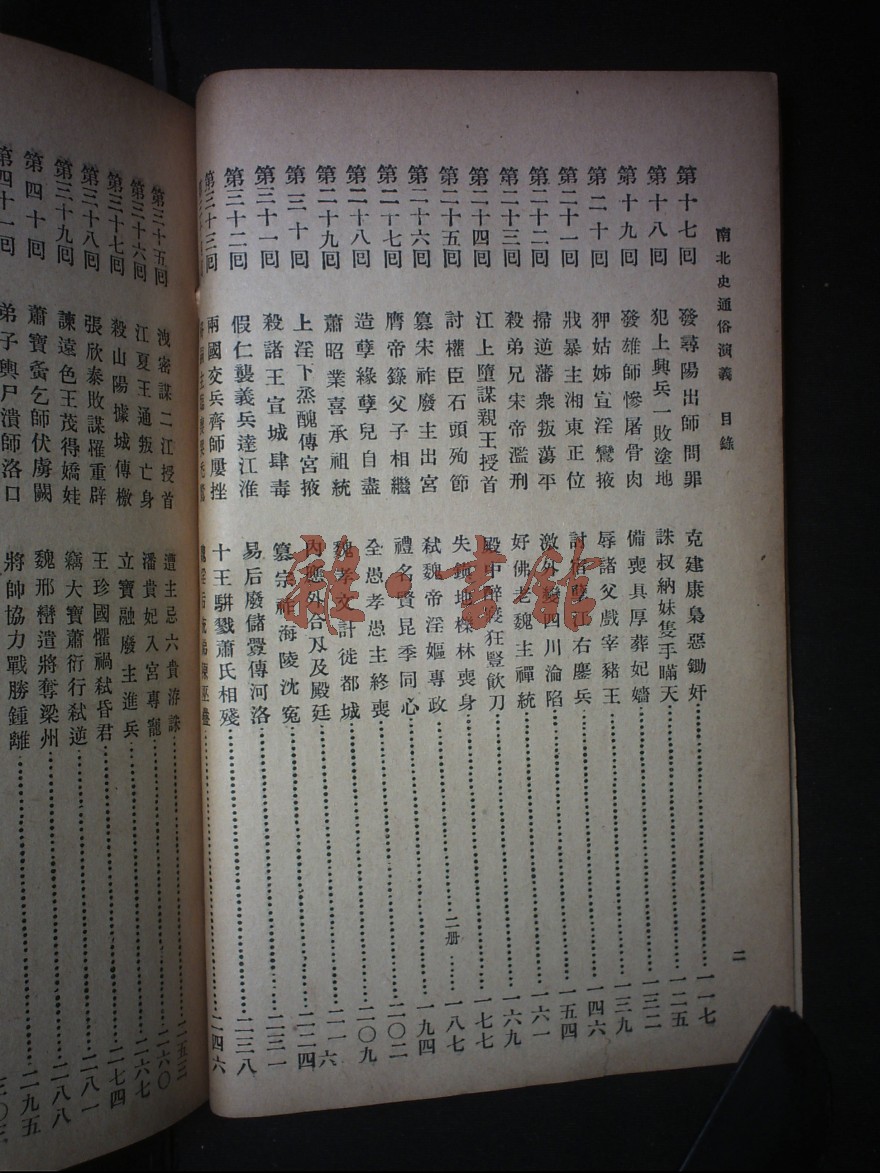 南北史通俗演義　目錄　二
第十七回　發尋陽出師問罪　克建康梟惡鋤奸　一一七
第十八回　犯上興兵一敗塗地　誅叔納妹隻手瞞天　一二五
第十九回　發雄師慘屠骨肉　備喪具厚葬妃嬙　一三二
第二十回　狎姑姊宣淫鸞掖　辱諸父戲宰豬王　一三九
第二十一回　戕暴主湘東正位　討孽江右鏖兵　一四六
第二十二回　掃逆藩衆叛蕩平　激外四川淪陷　一五四
第二十三回　殺弟兄宋帝濫刑　好佛老魏主禪統　一六一
第二十四回　江上墮謀親王授首　殿中醉狂豎飲刀　一六九
第二十五回　討權臣石頭殉節　失地櫟林喪身　一七七
二册
第二十六回　篡宋祚廢主出宮　弒魏帝淫嫗專政　一八七
第二十七回　膺帝籙父子相繼　禮名賢昆季同心　一九四
第二十八回　造孽緣孽兒自盡　全愚孝愚主終喪　二〇二
第二十九回　蕭昭業喜承祖統　魏孝文計徙都城　二〇九
第三十回　上淫下蒸醜傳宮掖　內應外合刄及殿廷　二一六
第三十一回　殺諸王宣城肆毒　篡宗祚海陵沈冤　二二四
第三十二回　假仁襲義兵達江淮　易后廢儲釁傳河洛　二三一
第三十三回　兩國交兵齊師屢挫　十王駢戮蕭氏相殘　二三八
二四六
第三十五回　洩密謀二江授首　遭主忌六貴洊誅　二五三
第三十六回　江夏王通叛亡身　潘貴妃入宮專寵　二六〇
第三十七回　殺山陽據城傳檄　立寶融廢主進兵　二六七
第三十八回　張欣泰敗謀罹重辟　王珍國懼禍弒昏君　二七四
第三十九回　諫遠色王茂得嬌娃　竊大寶蕭衍行弒逆　二八一
第四十回　蕭寶夤乞師伏虜闕　魏邢巒遣將奪梁州　二八八
第四十一回　弟子輿尸潰師洛口　將帥協力戰勝鍾離　二九五
雜·書館